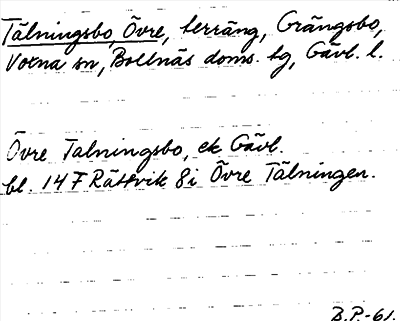 Tälningsbo, Övre, terräng, Grängsbo,
Voxna sn, Bollnäs doms. tg, Gävl. l.
Övre Talningsbo, ek Gävl.
bl. 14 F Rättvik 8i Övre Tälningen.
B.P.-61.